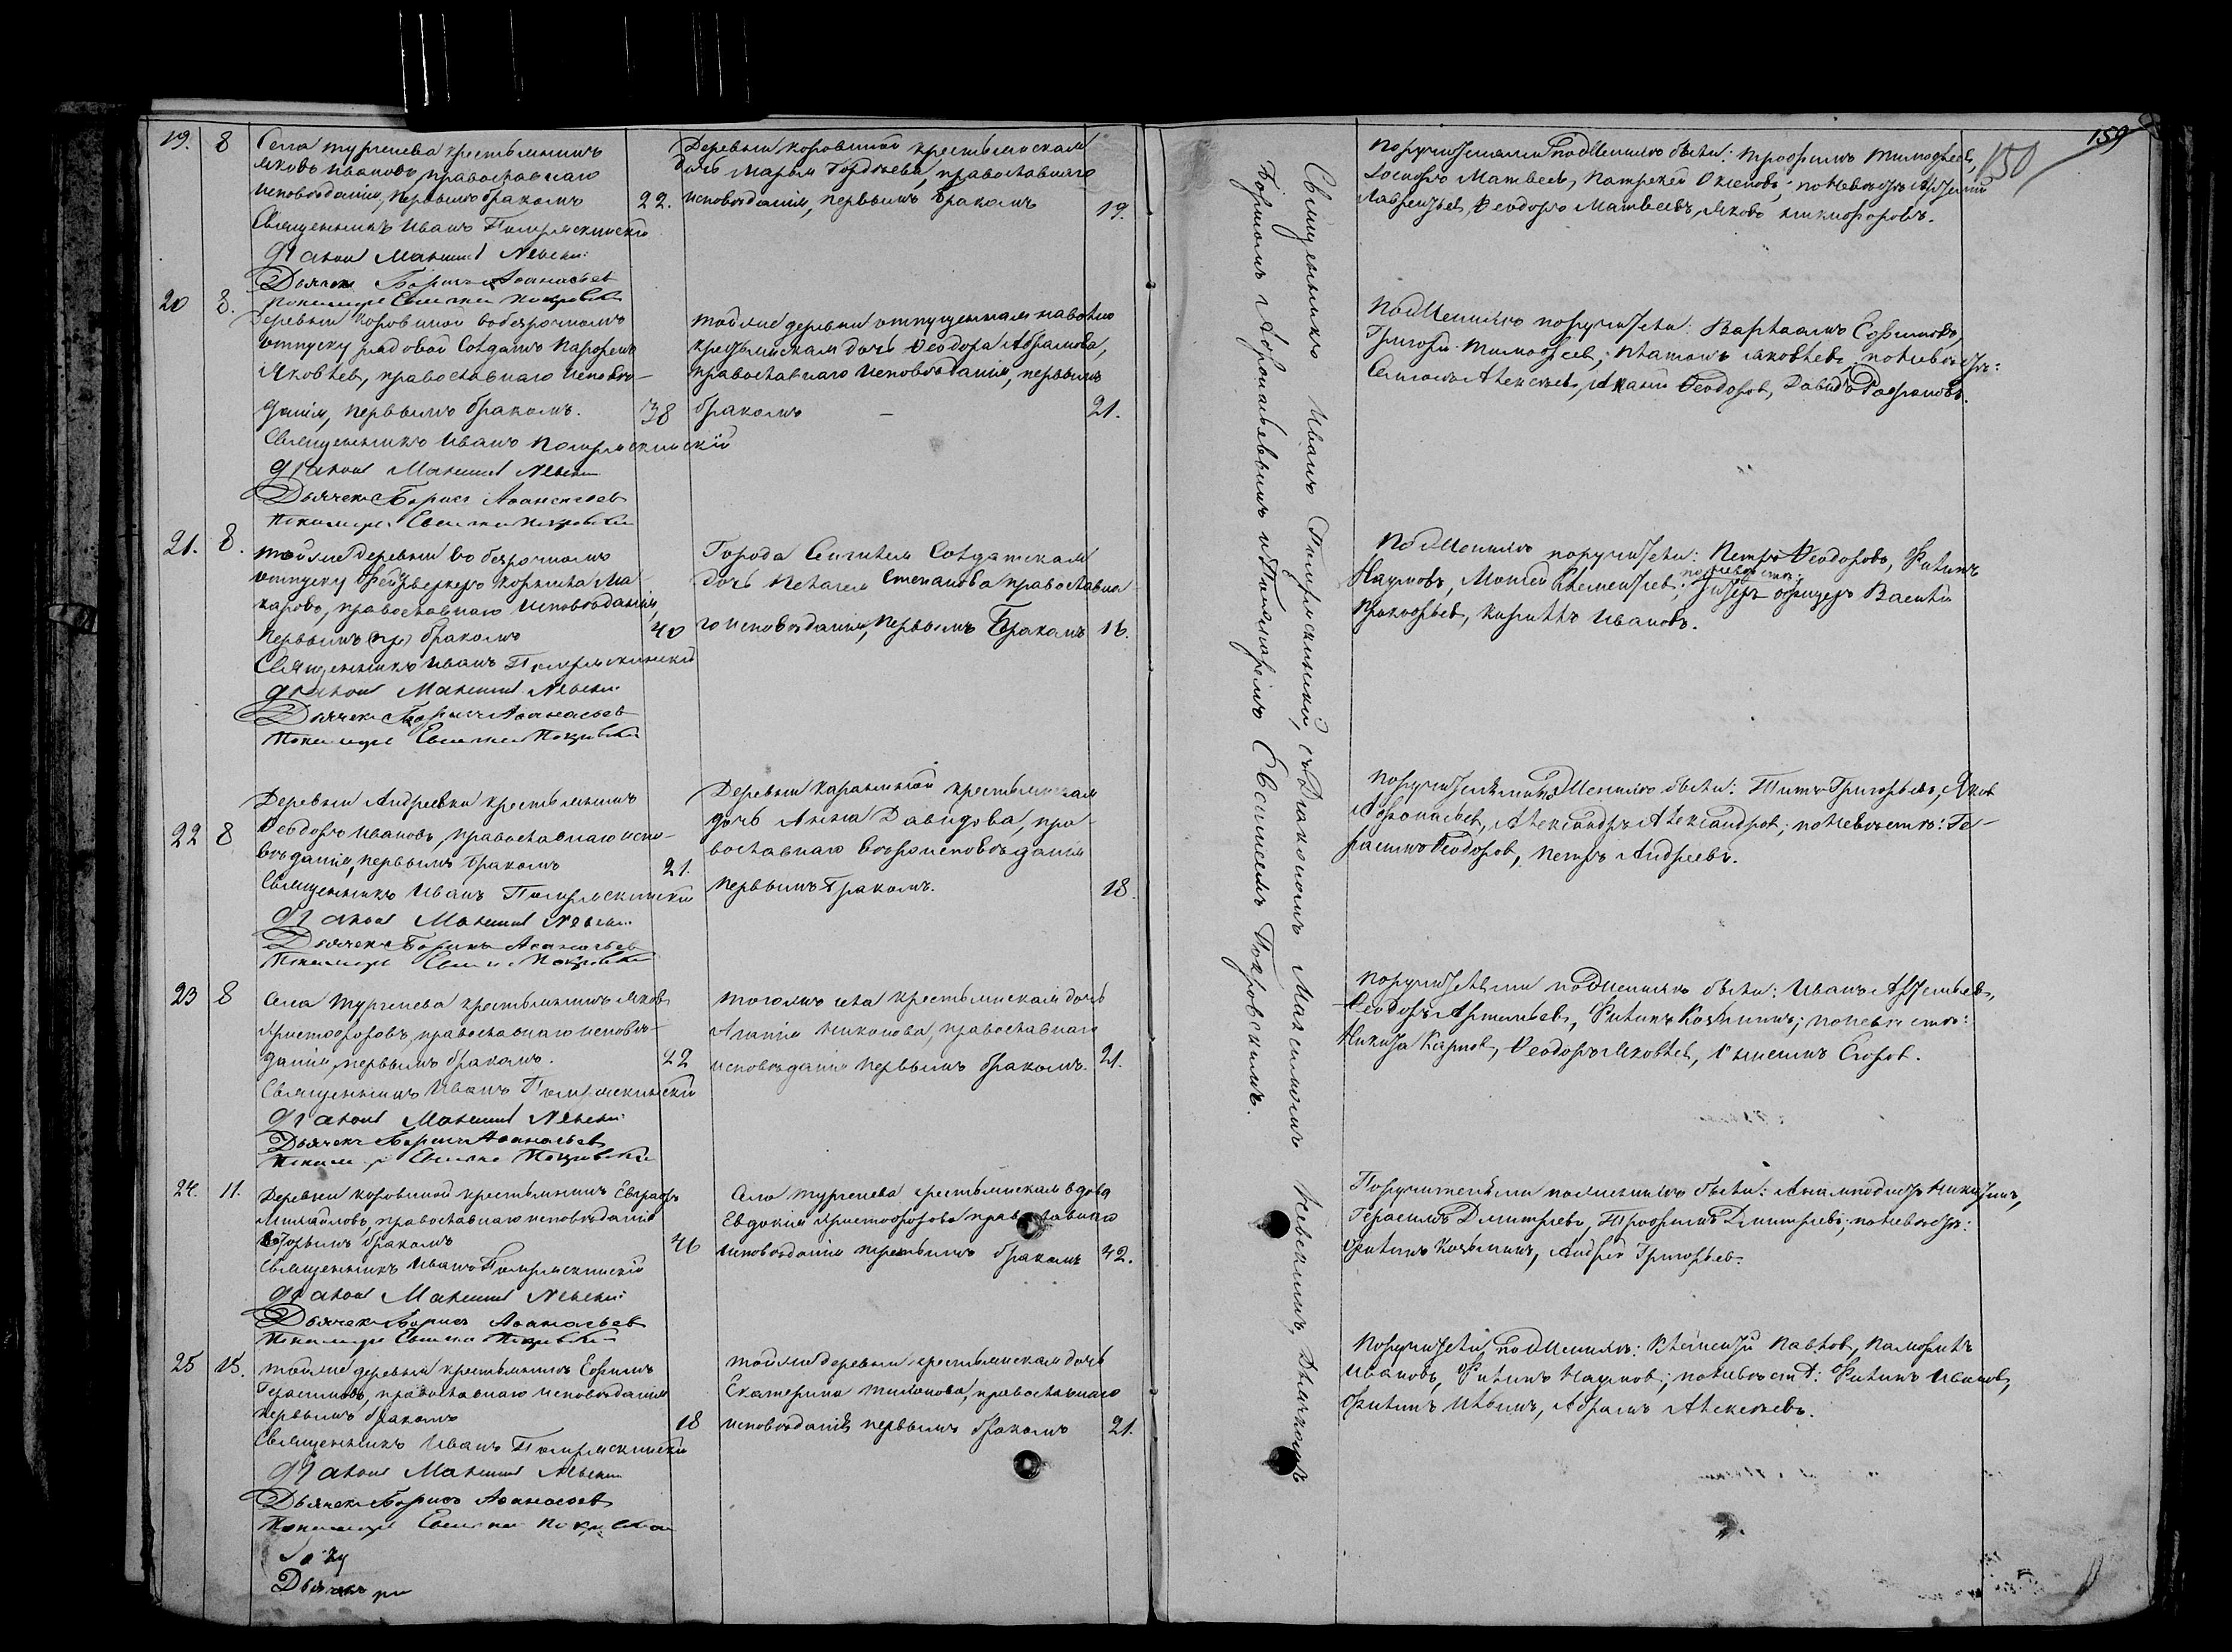 19. 8 Села Тургенева крестьянинъ
Яковъ Ивановъ, православнаго
исповѣданія, первымъ бракомъ 22.
Священникъ Иванъ
Діаконъ Максимъ Невскій
Дьячекъ Борисъ Аѳанасьевъ
Пономарь Евсигней Покровскій
Деревни Коровиной крестьянская
дочь Марья Гордѣева, православнаго
исповѣданія, первымъ бракомъ 19.
20 8. Деревни Коровиной въ безсрочномъ
отпуску рядовой солдатъ Парфенъ
Яковлев, православнаго исповѣ-
данія, первымъ бракомъ. 38
Священникъ Иванъ
Діаконъ Максимъ Невскій
Дьячекъ Борисъ Аѳанасьевъ
Пономарь Евсигней Покровскій
Той же деревни отпущенная на волю
крестьянская дочь Ѳеодора Абрамова,
православнаго исповѣданія, первымъ
бракомъ 21.
21. 8. Той же деревни въ безрочномъ
отпуску фейерверкеръ Корнила Ма-
каровъ, православнаго исповѣданія,
первымъ бракомъ 40
Священникъ Иванъ
Діаконъ Максимъ Невскій
Дьячекъ Борисъ Аѳанасьевъ
Пономарь Евсигней Покровскій
Города Сенгилея солдатская
дочь Пелагея Степанова православна-
го исповѣданія, первымъ бракомъ 16.
22 8 Деревни Андреевки крестьянинъ
Ѳеодоръ Ивановъ, православнаго испо-
вѣданія, первымъ бракомъ 21.
Священникъ Иванъ
Діаконъ Максимъ Невскій
Дьячекъ Борисъ Аѳанасьевъ
Пономарь Евсигней Покровскій
Деревни крестьянская
дочь Анна Давидова, пра-
вославнаго вѣроисповѣданія
первымъ бракомъ. 18
23 8 Села Тургенева крестьянинъ Яковъ
Христофоровъ, православнаго исповѣ-
данія, первымъ бракомъ. 22
Священникъ Иванъ
Діаконъ Максимъ Невскій
Дьячекъ Борисъ Аѳанасьевъ
Пономарь Евсигней Покровскій
Того жъ села крестьянская дочь
Агапія Никонова, православнаго
исповѣданія первымъ бракомъ. 21.
24. 11. Деревни Коровиной крестьянинъ Евграфъ
Михайловъ, православнаго исповѣданія
вторымъ бракомъ 46
Священникъ Иванъ
Діаконъ Максимъ Невскій
Дьячекъ Борисъ Аѳанасьевъ
Пономарь Евсигней Покровскій
Села Тургенева крестьянская вдова
Евдокія Христофорова православнаго
исповѣданія третьимъ бракомъ 42.
25 15. Той же деревни крестьянинъ Ефимъ
Герасимовъ, православнаго исповѣданія
первымъ бракомъ 18
Священникъ Иванъ
Діаконъ Максимъ Невскій
Дьячекъ Борисъ Аѳанасьевъ
Пономарь Евсигней Покровскій
Дьячекъ
Той же деревни крестьянская дочь
Екатерина православнаго
исповѣданія первымъ бракомъ 21.
Священникъ Иванъ съ Діакономъ Максимомъ Невскимъ, Дьячкомъ
Борисомъ Аѳонасьевымъ и Пономаремъ Евсигнеемъ Покровскимъ.
159
150
Поручителями по женихѣ были: Трофимъ Тимофѣевъ,
Матвеевъ, Патрекей по невѣстѣ: Артемій
Лаврентьевъ, Ѳеодоръ Матвѣевъ, Яковъ Никифоровъ.
По женихѣ поручители: Варлаамъ Ефимовъ,
Григорій Тимофеевъ, Платонъ Яковлевъ, по невѣстѣ:
Алексѣевъ, Ѳеодоровъ, Давидъ
По женихѣ поручители: Петръ Ѳеодоровъ, Филипъ
Наумовъ, Моисей Клементьевъ; по невѣстѣ: унтеръ офицеръ Василій
Прокофьевъ, Кириллъ Ивановъ.
Поручителями по женихѣ были: Титъ Григорьевъ, Яковъ
Афонасьевъ, Александръ Александровъ; по невѣстѣ: Ге-
расимъ Ѳеодоровъ, Петръ Андреевъ.
Поручителями по женихѣ были: Иванъ Артемьевъ,
Ѳеодоръ Артемьевъ, Филипъ Козминъ; по невѣстѣ:
Никита Карповъ, Ѳеодоръ Яковлевъ, Егоровъ.
Поручителями по женихѣ были: Никитинъ,
Герасимъ Дмитріевъ, Трофимъ Дмитріевъ; по невѣстѣ:
Филипъ Козьминъ, Андрей Григорьевъ.
Поручители по женихѣ: Клементій Павловъ, Памфилъ
Ивановъ, Филипъ Наумовъ; по невѣстѣ: Филипъ Ивановъ,
Филипъ Ильинъ, Абрамъ Алексѣевъ.